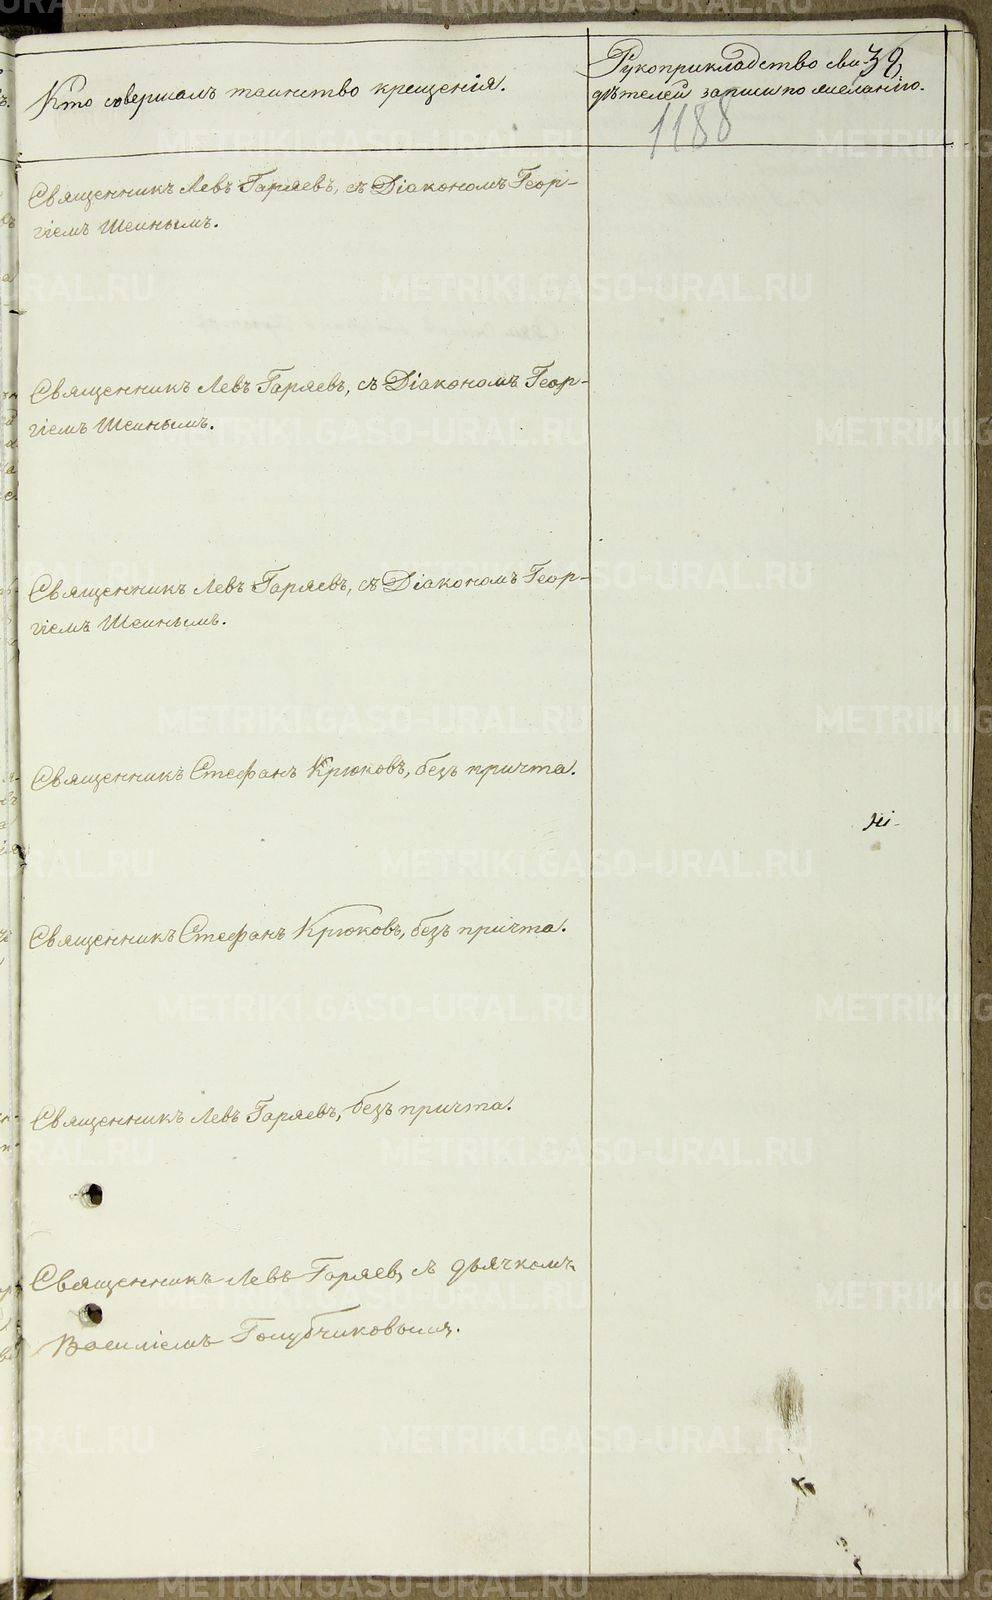 Кто совершалъ таинство крещенія.
Рукоприкладство сви-
дѣтелей записи по желанію.
39
1188
Священникъ Левъ Гаряевъ, съ Діакономъ Геор-
гіемъ Шеинымъ.
Священникъ Левъ Гаряевъ, съ Діакономъ Геор-
гіемъ Шеинымъ.
Священникъ Левъ Гаряевъ, съ Діакономъ Геор-
гіемъ Шеинымъ.
Священникъ Стефанъ Крюковъ, безъ причта.
Священникъ Стефанъ Крюковъ, безъ причта.
Священникъ Левъ Гаряевъ, безъ причта.
Священникъ Левъ Гаряев, съ дьячкомъ
Василіемъ Голубчиковымъ.
METRIKI.GASO-URAL.RU